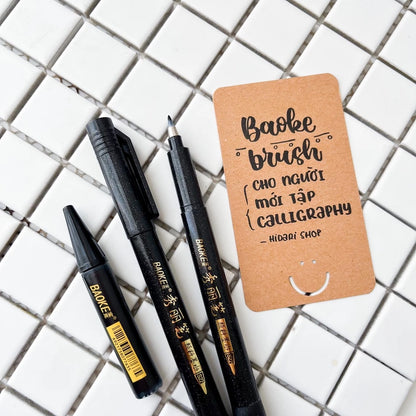 Baoke
brush
CHO NGƯỜI
MỚI TẬP
CALLIGRAPHY
– HIDARI SHOP
BAOKE
BAOKE 秀丽笔
BAOKE 秀丽笔